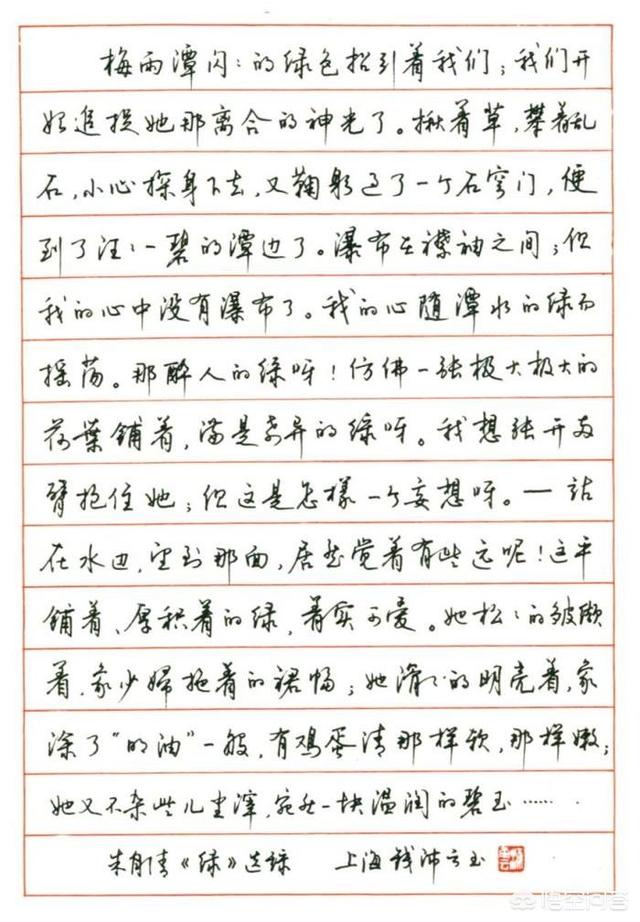 梅雨潭闪々的绿色招引着我们;我们开
始追捉她那离合的神光了。揪着草,攀着乱
石,小心探身下去,又鞠躬过了一个石穹门,便
到了汪々一碧的潭边了。瀑布在襟袖之间;但
我的心中没有瀑布了。我的心随潭水的绿而
摇荡。那醉人的绿呀!仿佛一张极大极大的
荷葉鋪着,满是奇异的绿呀。我想张开两
臂抱住她;但这是怎樣一个妄想呀。—站
在水边,望到那面,居然觉着有些远呢!这平
鋪着、厚积着的绿,着实可爱。她松々的皱缬
着,象少婦拖着的裙幅;她滑々的明亮着,象
涂了“明油”一般,有鸡蛋清那样软,那样嫩;
她又不杂些儿尘滓,宛然一块温润的碧玉……
朱自清《绿》选录 上海钱沛云书
悟空问答